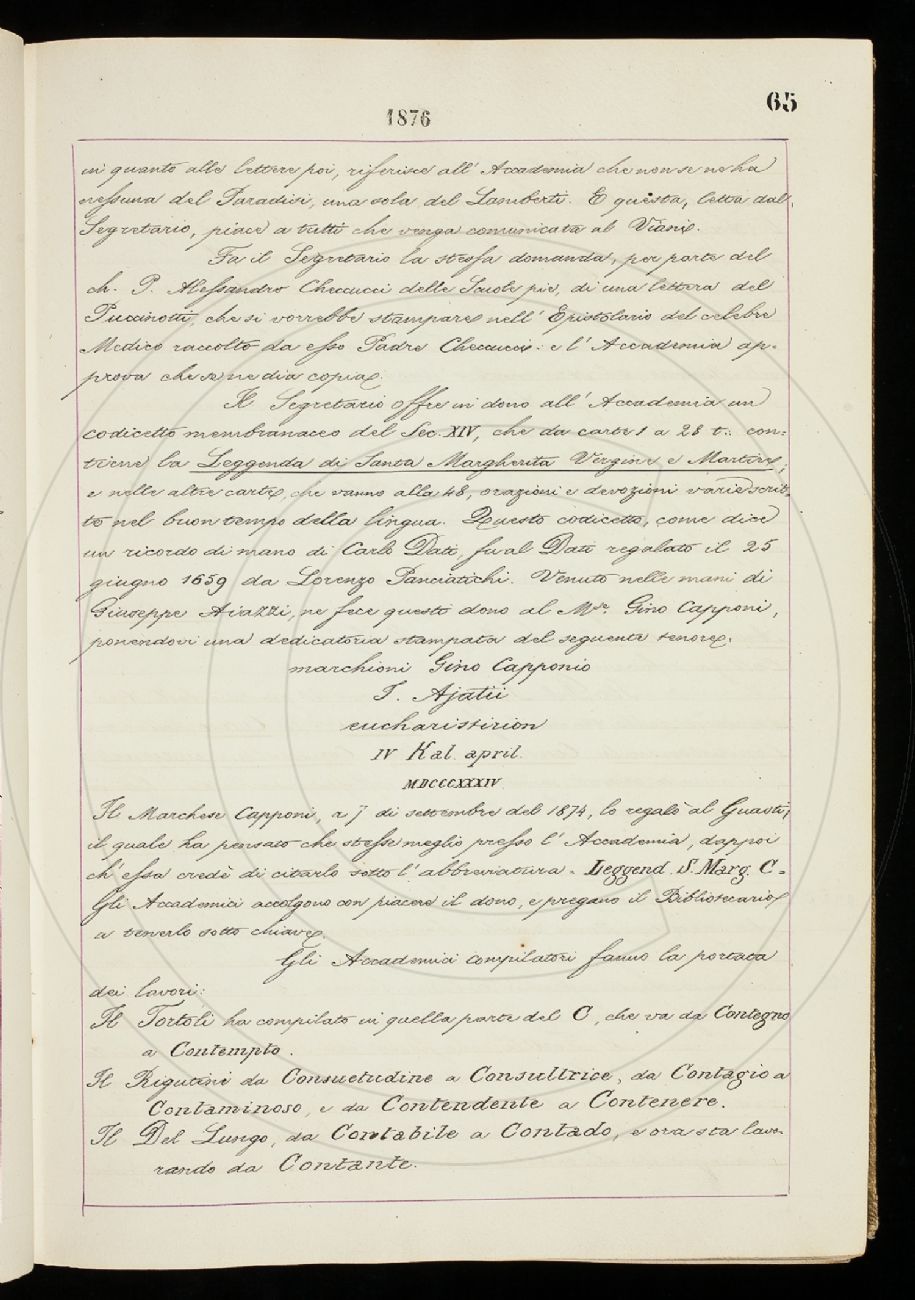 65
1876
in quanto alle lettere poi, riferisce all' Accademia che non se ne ha
nessuna del Paradisi, una sola del Lamberti. E questa, letta dal
Segretario, piace a tutti che venga comunicata al Viani.
Fa il Segretario la stessa domanda, per parte del
ch. P. Alessandro Checcucci delle Scuole pie, di una lettera del
Puccinotti, che si vorrebbe stampare nell' Epistolario del celebre
Medico raccolto da esso Padre Checcucci: e l' Accademia ap-
prova che se ne dia copia.
Il Segretario offre in dono all' Accademia un
codicetto membranaceo del Sec. XIV, che da carte 1 a 28 t.: con:
tiene la Leggenda di Santa Margherita Vergine e Martire;
e nelle altre carte, che vanno alla 48, orazioni e devozioni varie scrit:
te nel buon tempo della lingua. Questo codicetto, come dice
un ricordo di mano di Carlo Dati, fu al Dati regalato il 25
giugno 1659 da Lorenzo Panciatichi. Venuto nelle mani di
Giuseppe Aiazzi, ne fece questi dono al Mse. Gino Capponi,
ponendovi una dedicatoria stampata del seguente tenore.
marchioni Gino Capponio
I. Ajatii
eucharistirion
IV Kal. april.
MDCCCXXXIV
Il Marchese Capponi, a 7 di settembre del 1874, lo regalò al Guasti;
il quale ha pensato che stesse meglio presso l' Accademia, dappoi
ch' essa credè di citarlo sotto l' abbreviatura - Leggend. S. Marg. C -
Gli Accademici accolgono con piacere il dono, e pregano il Bibliotecario
a tenerlo sotto chiave.
Gli Accademici compilatori fanno la portata
dei lavori:
Il Tortoli ha compilato in quella parte del C, che va da Contegno
a Contempto.
Il Rigutini da Consuetudine a Consultrice, da Contagio a
Contaminoso, e da Contendente a Contenere.
Il Del Lungo, da Contabile a Contado, e ora sta lavo-
rando da Contante.